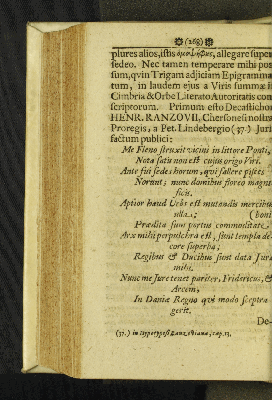 (268)
plures alios, istis ὁμοψήφους, allegare super-
sedeo. Nec tamen temperare mihi pos-
sum, qvin Trigam adjiciam Epigramma-
tum, in laudem ejus a Viris summæ in
Cimbria & Orbe Literato Autoritatis con-
scriptorum. Primum esto Decastichon
HENR. RANZOVII, Chersonesi nostræ
Proregis, a Pet. Lindebergio (37) Juris
factum publici:
Me Fleno struxit vicini in littore Ponti,
Nota satis non est cujus origo Viri.
Ante fui sedes horum, qvi fallere pisces
Norunt; nunc domibus floreo magni-
ficis.
Aptior haud Urbs est mutandis mercibus
ulla; (boni
Prædita sum portus commoditate
Arx mihi perpulchra est, sunt templa de-
core superba;
Regibus & Ducibus sunt data Jura
mihi.
Nunc me Jure tenet pariter, Fridericus, &
Arcem,
In Daniæ Regno qvi modo sceptra
gerit.
De-
(37.) in Hypotyposi Ranzoviana, cap. 13.